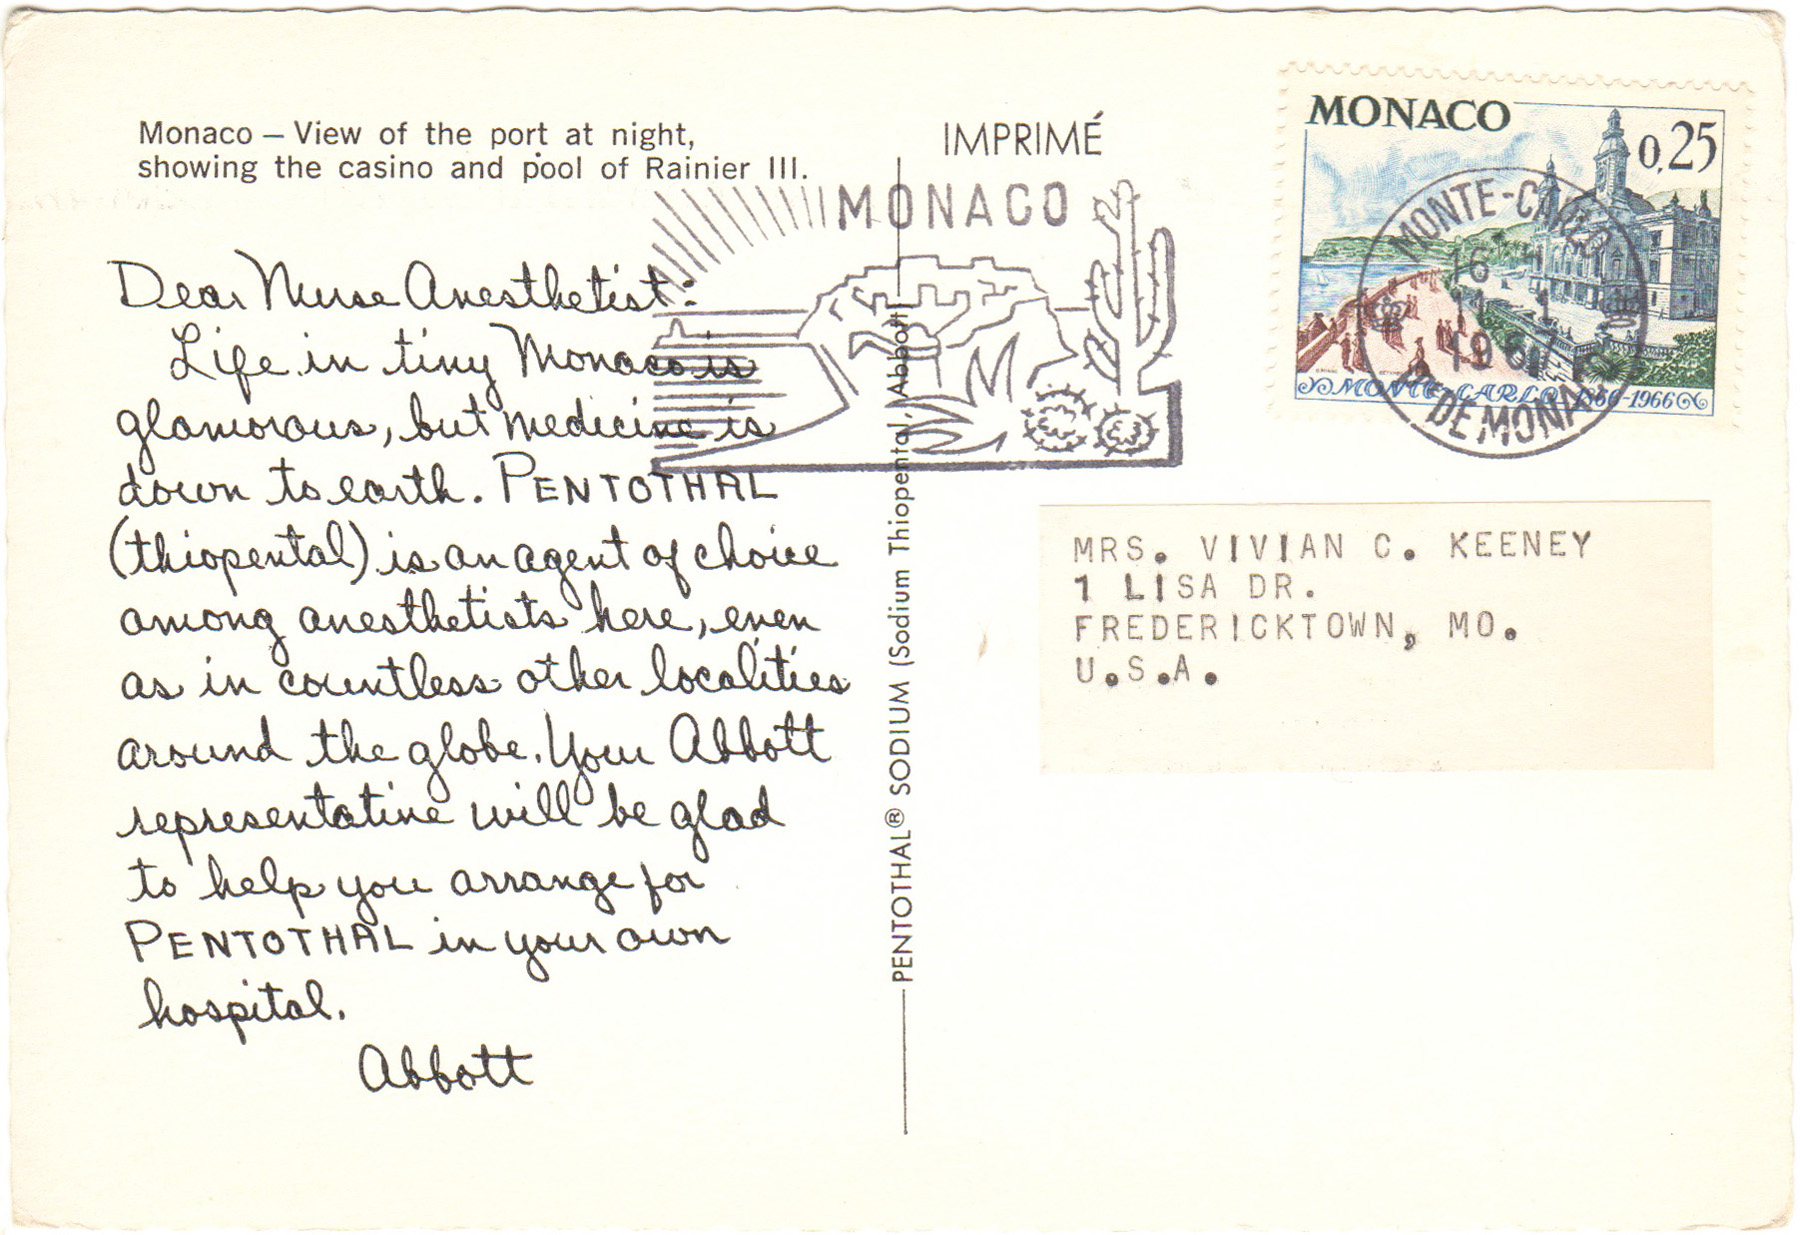 Monaco – View of the port at night,
showing the casino and pool of Rainier III.
Dear Nurse Anesthetist:
Life in tiny Monaco is
glamorous, but medicine is
down to earth. PENTOTHAL
(thiopental) is an agent of choice
among anesthetists here, even
as in countless other localities
around the globe. Your Abbott
representative will be glad
to help you arrange for
PENTOTHAL in your own
hospital.
Abbott
PENTOTHAL® SODIUM (Sodium Thiopental, Abbott)
IMPRIMÉ
MONACO
MONACO
0,25
MONTE-CARLO 1866-1966
MONTE-CARLO
16
1967
DE MONA
MRS. VIVIAN C. KEENEY
1 LISA DR.
FREDERICKTOWN, MO.
U.S.A.